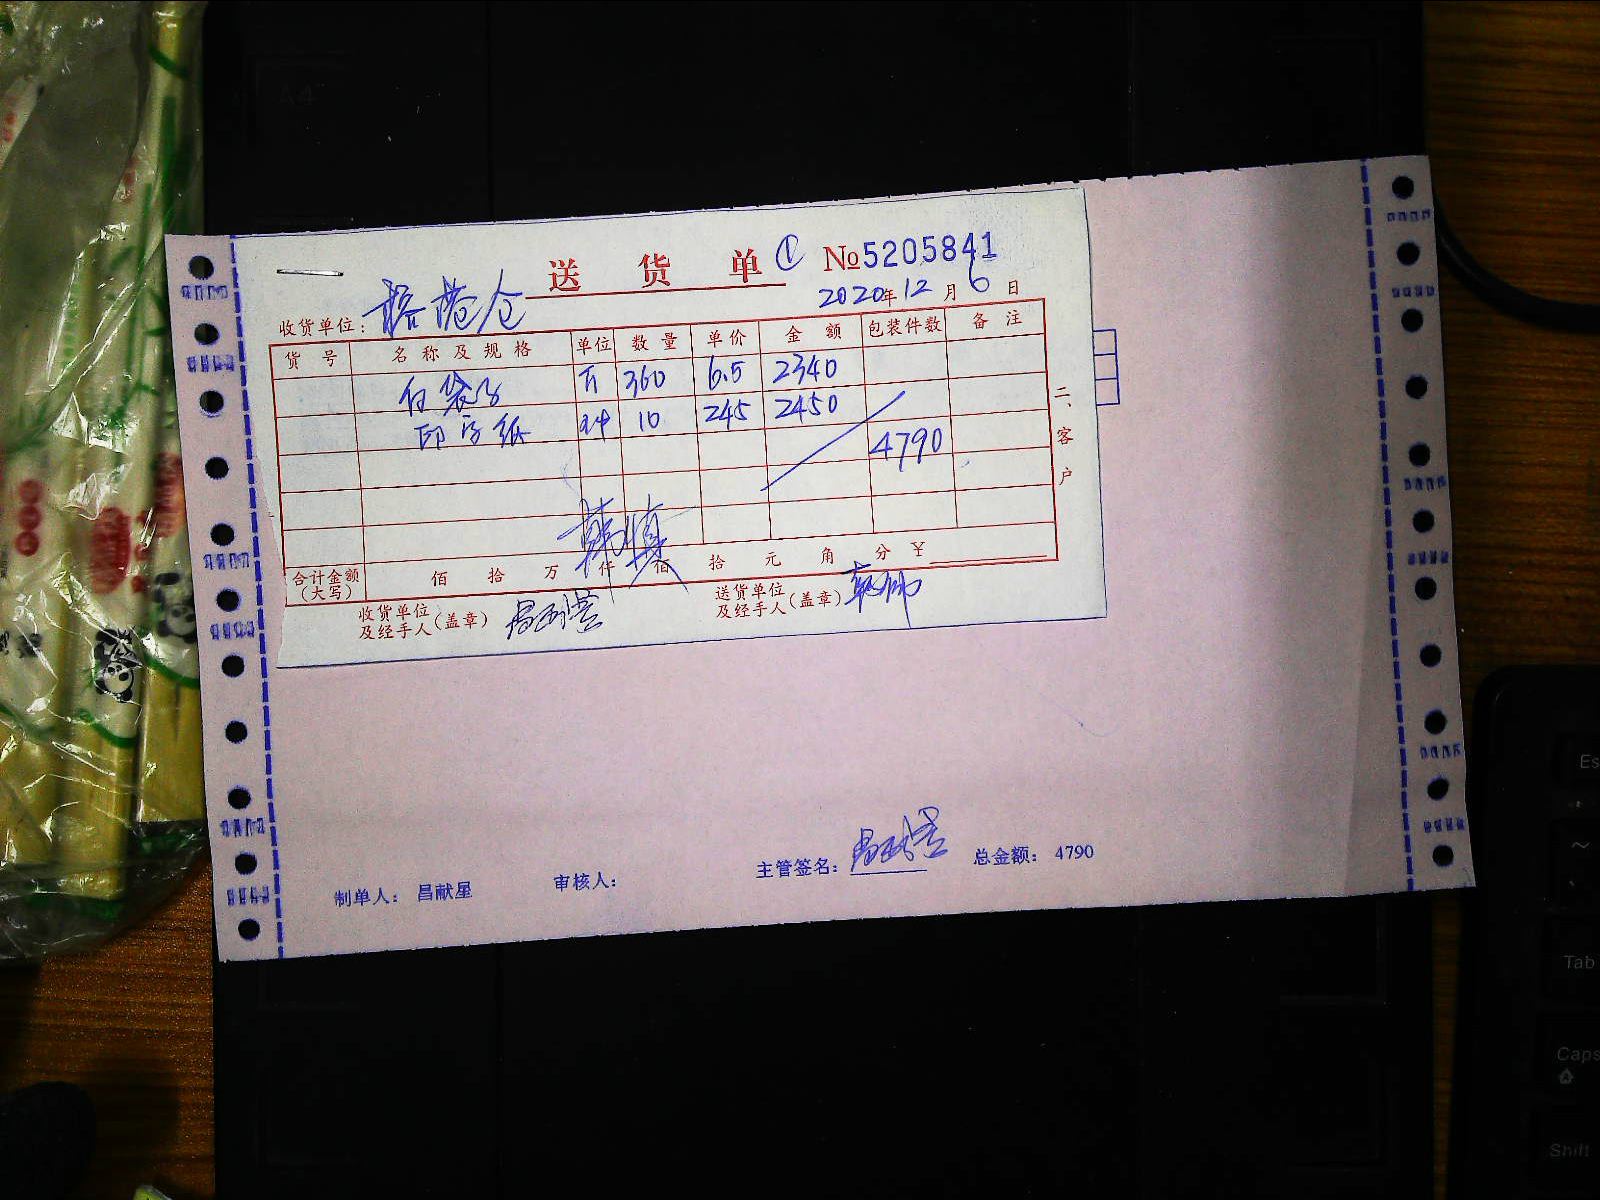 送 货 单 ① №5205841
2020年12月6日
收货单位：榕港仓
货 号 名 称 及 规 格 单位 数 量 单价 金 额 包装件数 备 注
白袋子 360 6.5 2340
印字纸 件 10 245 2450
4790
二、客户
合计金额（大写） 佰 拾 万 仟 佰 拾 元 角 分 ￥
收货单位及经手人（盖章）
送货单位及经手人（盖章）
制单人： 昌献星 审核人： 主管签名： 总金额： 4790
Es
~
Tab
Caps
Shift